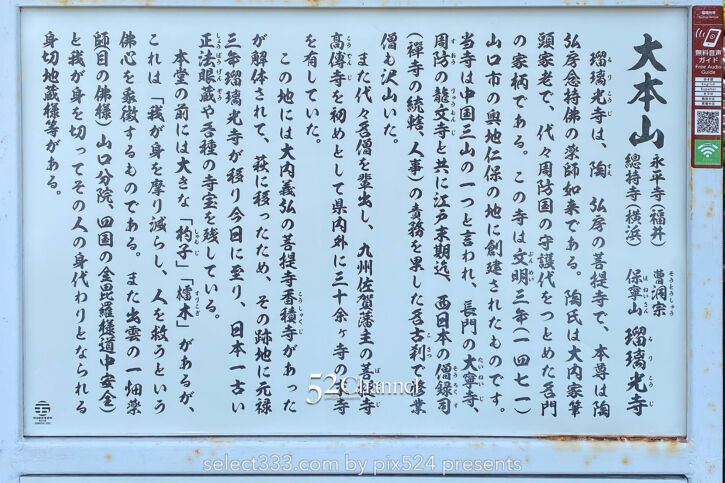 大本山
永平寺(福井)
總持寺(横浜)
曹洞宗
そうとうしゅう
保寧山
ほねいさん
瑠璃光寺
るりこうじ
瑠璃光寺は、陶　弘房の菩提寺で、本尊は陶
弘房念持佛の薬師如来である。陶氏は大内家筆
頭家老で、代々周防国の守護代をつとめた名門
の家柄である。この寺は文明三年(一四七一)
山口市の奥地仁保の地に創建されたものです。
当寺は中国三山の一つと言われ、長門の大寧寺
周防の龍文寺と共に江戸末期迄、西日本の僧録司
(禅寺の統轄、人事)の責務を果した名古刹で修業
僧も沢山いた。
また代々名僧を輩出し、九州佐賀藩主の菩提寺
高傳寺を初めとして県内外に三十余ヶ寺の末寺
を有していた。
この地には大内義弘の菩提寺香積寺があった
が解体されて、萩に移ったため、その跡地に元禄
三年瑠璃光寺が移り今日に至り、日本一古い
正法眼蔵や各種の寺宝を残している。
本堂の前には大きな「杓子」「擂木」があるが、
これは「我が身を摩り減らし、人を救うという
佛心を象徴するものである。また出雲の一畑薬
師目の佛様、山口分院、四国の金毘羅様道中安全)
と我が身を切ってその人の身代わりとなられる
身切地蔵様等がある。
無料音声
ガイド
Free Audio
Guide
52Channel
select333.com by pix524 presents